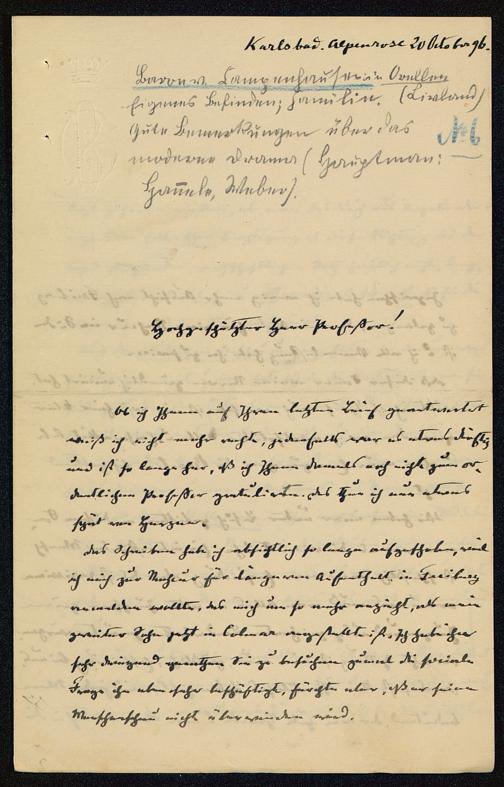 Karlsbad. Alpenrose 20 October 96.
Baron v. Campenhausen in Orellen
Eigenes Befinden; Familie. (Livland)
Gute Bemerkungen über das № 6
moderne Drama (Hauptman:
Hannele, Weber).
Hochgeschätzter Herr Professor!
Ob ich Ihnen auf Ihren letzten Brief geantwortet
weiß ich nicht mehr recht, jedenfalls war es etwas dürftig
und ist so lange her, daß ich Ihnen damals noch nicht zum or-
dentlichen Professor gratulierte. das thue ich nun etwas
spät von Herzen.
das Schreiben hab ich absichtlich so lange aufgeschoben, weil
ich mich zur Nachcur für längeren Aufenthalt in Freiburg
anmelden wollte, das mich um so mehr anzieht, als mein
zweiter Sohn jetzt in Colmar angestellt ist. Ich habe ihm
sehr dringend gerathen Sie zu besuchen zumal die sociale
Frage ihn eben sehr beschäftigt, fürchte aber, daß er seine
Menschenscheu nicht überwinden wird.